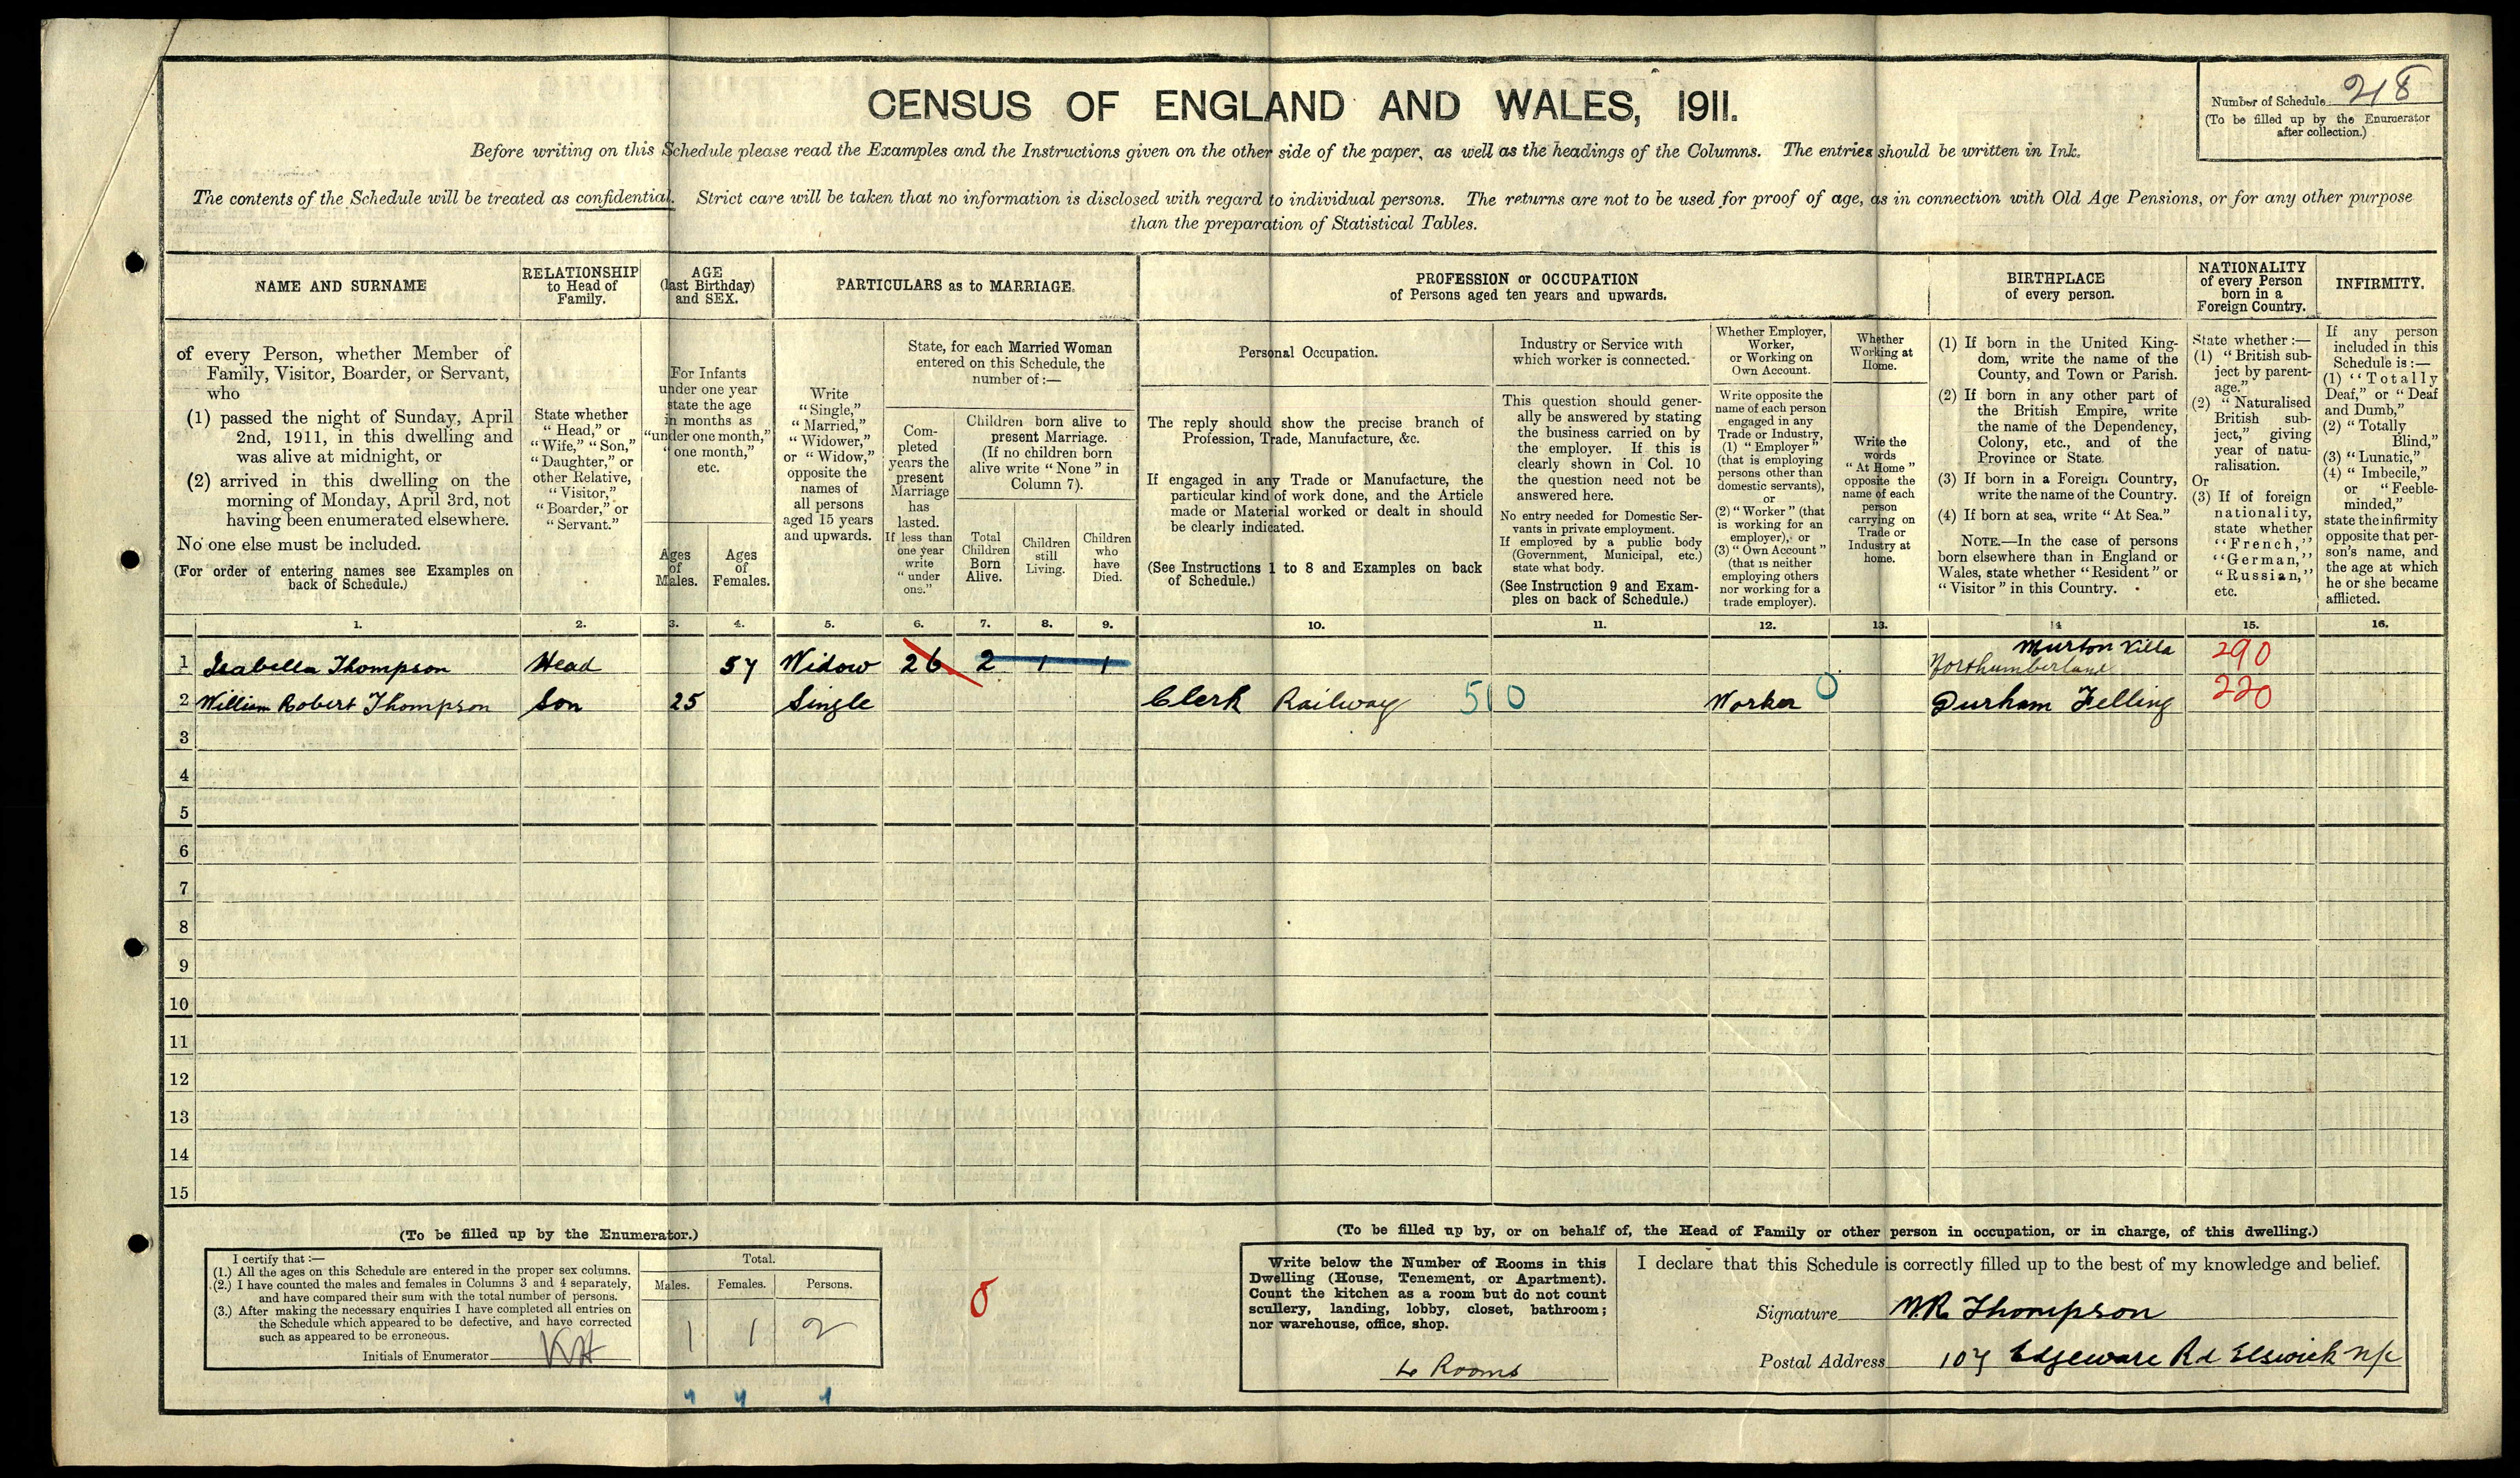 CENSUS OF ENGLAND AND WALES, 1911.
Number of Schedule 218
(To be filled up by the Enumerator
after collection.)
Before writing on this Schedule please read the Examples and the Instructions given on the other side of the paper, as well as the headings of the Columns. The entries should be written in Ink.
The contents of the Schedule will be treated as confidential. Strict care will be taken that no information is disclosed with regard to individual persons. The returns are not to be used for proof of age, as in connection with Old Age Pensions, or for any other purpose
than the preparation of Statistical Tables.
NAME AND SURNAME
of every Person, whether Member of
Family, Visitor, Boarder, or Servant,
who
(1) passed the night of Sunday, April
2nd, 1911, in this dwelling and
was alive at midnight, or
(2) arrived in this dwelling on the
morning of Monday, April 3rd, not
having been enumerated elsewhere.
No one else must be included.
(For order of entering names see Examples on
back of Schedule.)
RELATIONSHIP
to Head of
Family.
State whether
"Head," or
"Wife," "Son,"
"Daughter," or
other Relative,
"Visitor,"
"Boarder," or
"Servant."
AGE
(last Birthday)
and SEX.
For Infants
under one year
state the age
in months as
"under one month,"
"one month,"
etc.
Ages
of
Males.
Ages
of
Females.
PARTICULARS as to MARRIAGE.
Write
"Single,"
"Married,"
"Widower,"
or "Widow,"
opposite the
names of
all persons
aged 15 years
and upwards.
State, for each Married Woman
entered on this Schedule, the
number of:—
Com-
pleted
years the
present
Marriage
has
lasted.
If less than
one year
write
"under
one."
Children born alive to
present Marriage.
(If no children born
alive write "None" in
Column 7).
Total
Children
Born
Alive.
Children
still
Living.
Children
who
have
Died.
PROFESSION or OCCUPATION
of Persons aged ten years and upwards.
Personal Occupation.
The reply should show the precise branch of
Profession, Trade, Manufacture, &c.
If engaged in any Trade or Manufacture, the
particular kind of work done, and the Article
made or Material worked or dealt in should
be clearly indicated.
(See Instructions 1 to 8 and Examples on back
of Schedule.)
Industry or Service with
which worker is connected.
This question should gener-
ally be answered by stating
the business carried on by
the employer. If this is
clearly shown in Col. 10
the question need not be
answered here.
No entry needed for Domestic Ser-
vants in private employment.
If employed by a public body
(Government, Municipal, etc.)
state what body.
(See Instruction 9 and Exam-
ples on back of Schedule.)
Whether Employer,
Worker,
or Working on
Own Account.
Write opposite the
name of each person
engaged in any
Trade or Industry,
(1) "Employer"
(that is employing
persons other than
domestic servants),
or
(2) "Worker" (that
is working for an
employer), or
(3) "Own Account"
(that is neither
employing others
nor working for a
trade employer).
Whether
Working at
Home.
Write the
words
"At Home"
opposite the
name of each
person
carrying on
Trade or
Industry at
home.
BIRTHPLACE
of every person.
(1) If born in the United King-
dom, write the name of the
County, and Town or Parish.
(2) If born in any other part of
the British Empire, write
the name of the Dependency,
Colony, etc., and of the
Province or State.
(3) If born in a Foreign Country,
write the name of the Country.
(4) If born at sea, write "At Sea."
NOTE.—In the case of persons
born elsewhere than in England or
Wales, state whether "Resident" or
"Visitor" in this Country.
NATIONALITY
of every Person
born in a
Foreign Country.
State whether:—
(1) "British sub-
ject by parent-
age."
(2) "Naturalised
British sub-
ject," giving
year of natu-
ralisation.
Or
(3) If of foreign
nationality,
state whether
"French,"
"German,"
"Russian,"
etc.
INFIRMITY.
If any person
included in this
Schedule is:—
(1) "Totally
Deaf," or "Deaf
and Dumb,"
(2) "Totally
Blind,"
(3) "Lunatic,"
(4) "Imbecile,"
or "Feeble-
minded,"
state the infirmity
opposite that per-
son's name, and
the age at which
he or she became
afflicted.
1. 2. 3. 4. 5. 6. 7. 8. 9. 10. 11. 12. 13. 14 15. 16.
1 Isabella Thompson Head 57 Widow 26 2 1 1 Murton Villa Northumberland 290
2 William Robert Thompson Son 25 Single Clerk Railway 510 Worker 0 Durham Felling 220
3
4
5
6
7
8
9
10
11
12
13
14
15
(To be filled up by the Enumerator.)
I certify that:—
(1.) All the ages on this Schedule are entered in the proper sex columns.
(2.) I have counted the males and females in Columns 3 and 4 separately,
and have compared their sum with the total number of persons.
(3.) After making the necessary enquiries I have completed all entries on
the Schedule which appeared to be defective, and have corrected
such as appeared to be erroneous.
Initials of Enumerator KH
Total.
Males. Females. Persons.
1 1 2
(To be filled up by, or on behalf of, the Head of Family or other person in occupation, or in charge, of this dwelling.)
Write below the Number of Rooms in this
Dwelling (House, Tenement, or Apartment).
Count the kitchen as a room but do not count
scullery, landing, lobby, closet, bathroom;
nor warehouse, office, shop.
4 Rooms
I declare that this Schedule is correctly filled up to the best of my knowledge and belief.
Signature W.R. Thompson
Postal Address 107 Edgeware Rd Elswick N/C